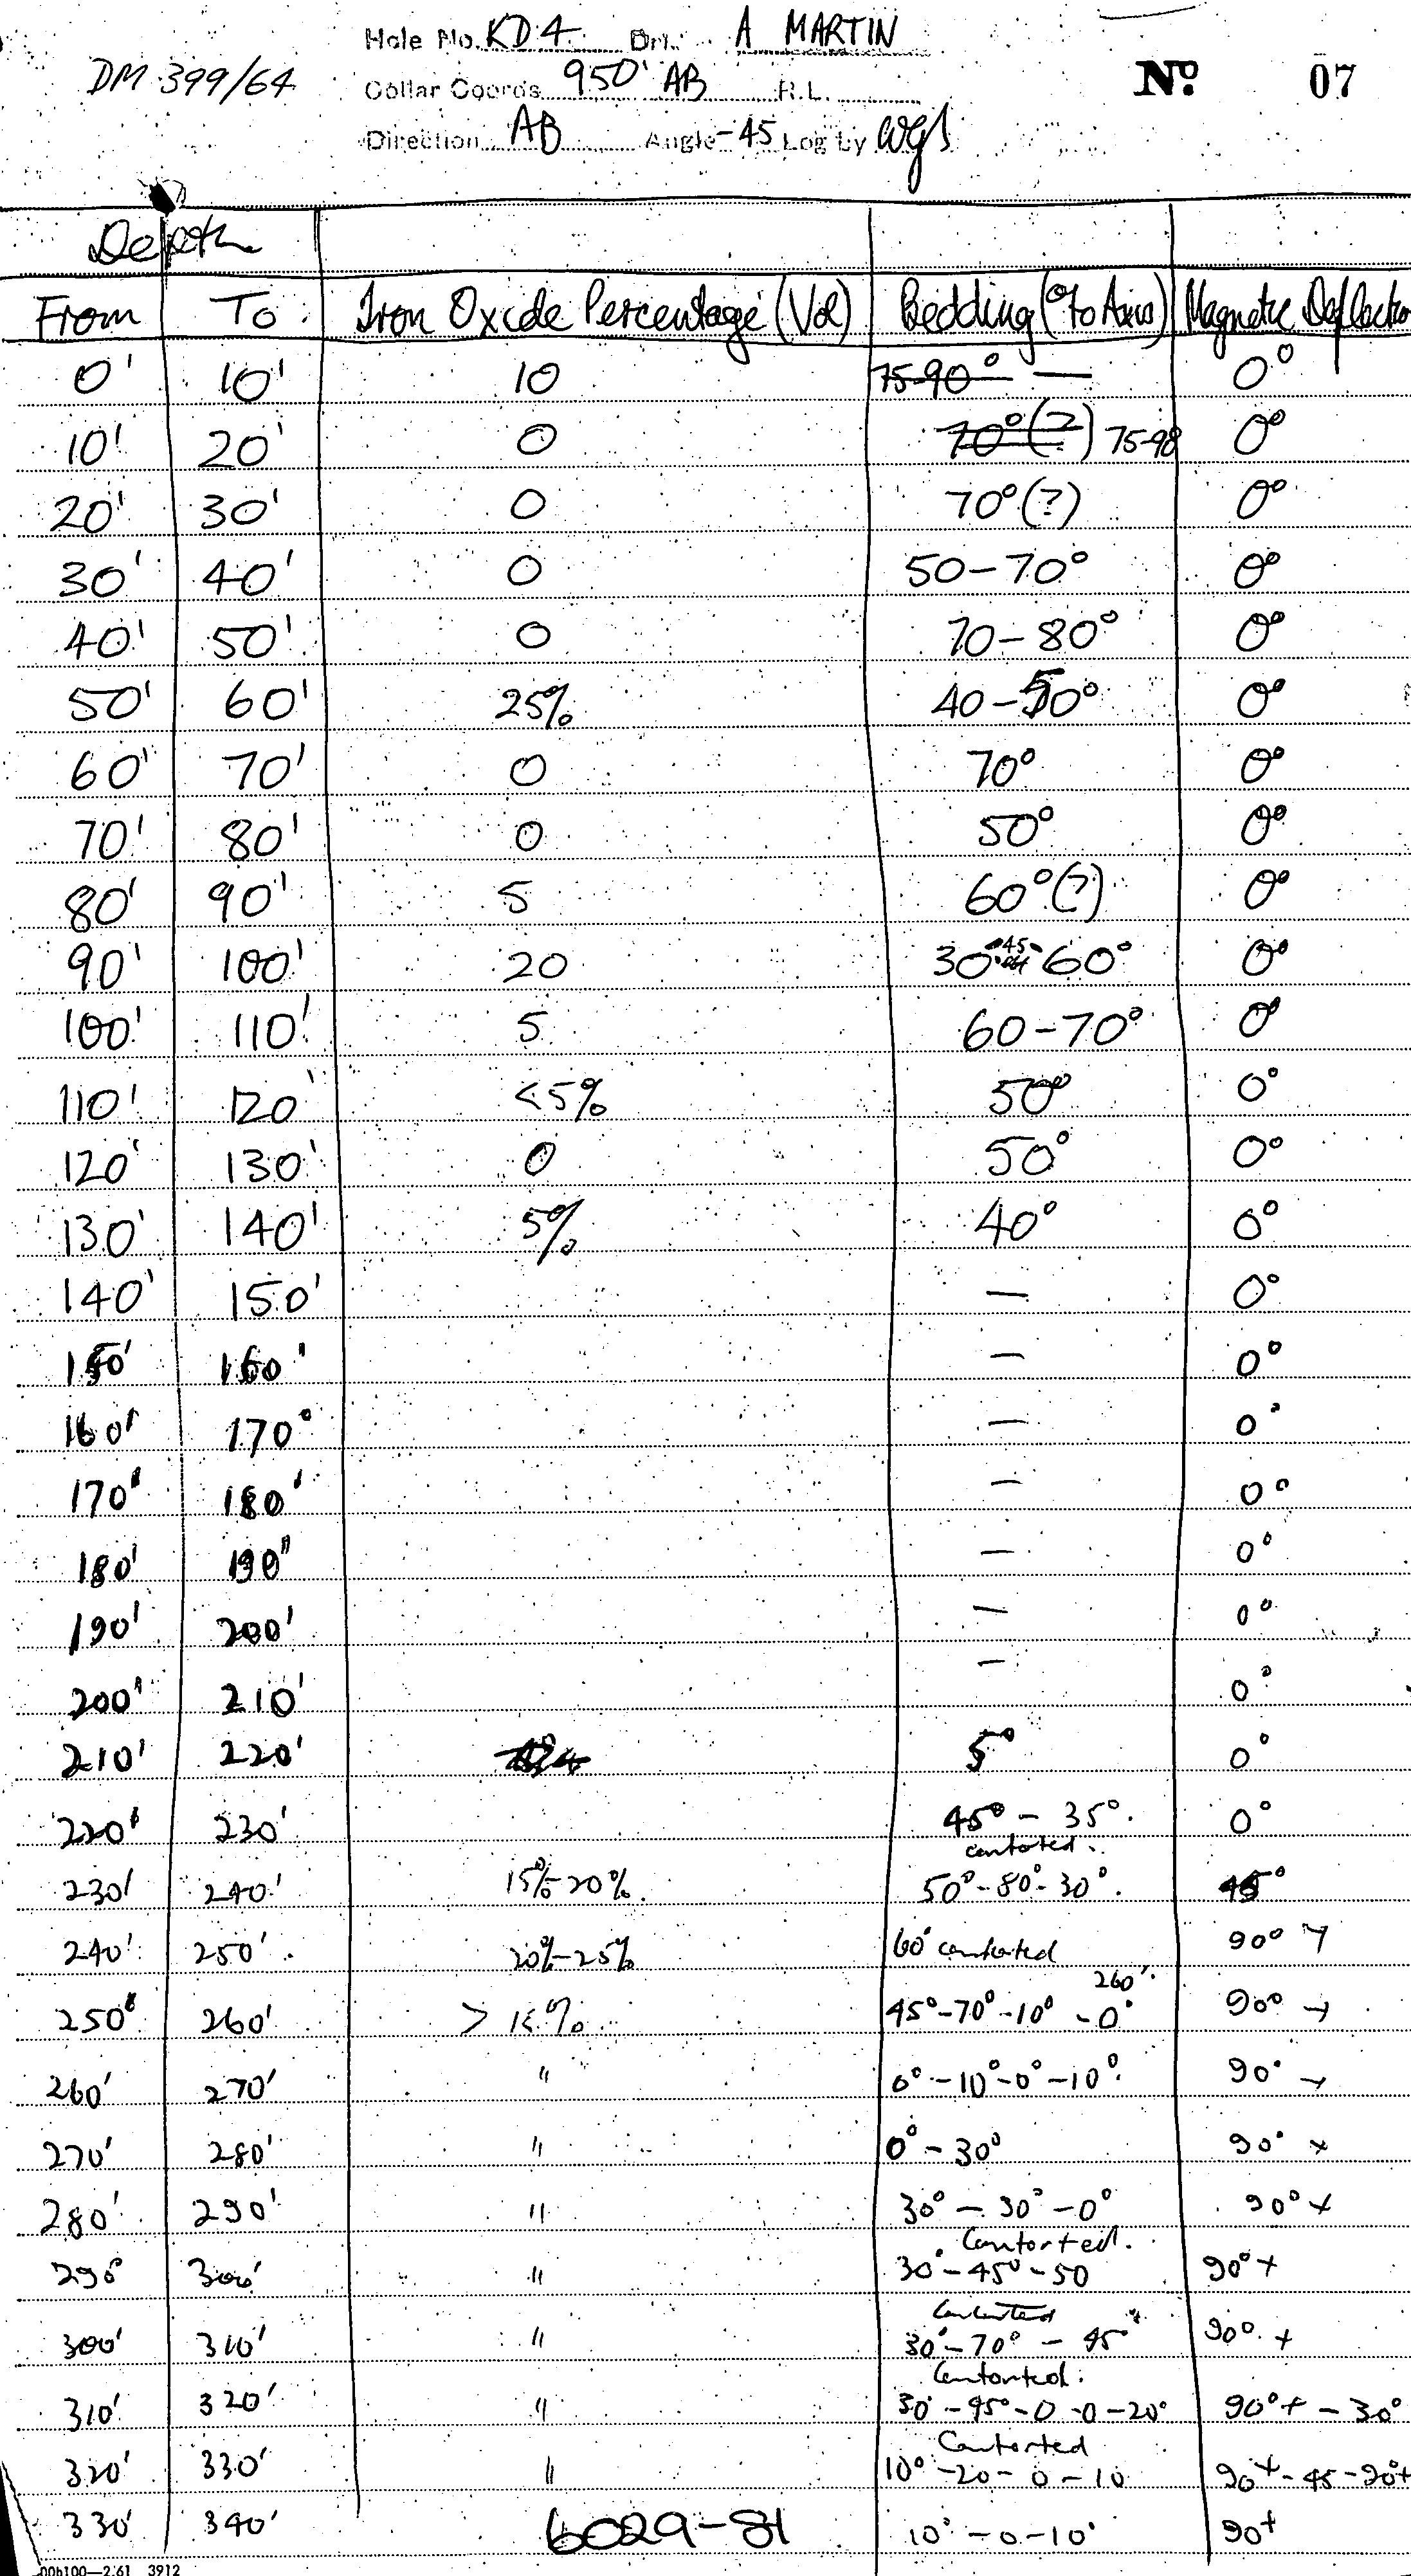 Hole No. KD4 Dri. A MARTIN
DM 399/64 Collar Coords 950' AB R.L. No. 07
Direction AB Angle -45 Log by wgs
Depth
From To Iron Oxide Percentage (Vol) Bedding (° to Axis) Magnetic Deflectio
0' 10' 10 75-90° — 0°
10' 20' 0 70° (?) 75-90 0°
20' 30' 0 70° (?) 0°
30' 40' 0 50-70° 0°
40' 50' 0 70-80° 0°
50' 60' 25% 40-50° 0°
60' 70' 0 70° 0°
70' 80' 0 50° 0°
80' 90' 5 60° (?) 0°
90' 100' 20 30°-45-60° 0°
100' 110' 5 60-70° 0°
110' 120' <5% 50° 0°
120' 130' 0 50° 0°
130' 140' 5% 40° 0°
140' 150' — 0°
150' 160' — 0°
160' 170° — 0°
170' 180' — 0°
180' 190' — 0°
190' 200' — 0°
200' 210' — 0°
210' 220' 5° 0°
220' 230' 45° - 35°. 0°
contorted.
230' 240' 15%-20%. 50°-80°-30°. 45°
240' 250'. 20%-25% 60° contorted 90°
260'.
250' 260' > 45°-70°-10° -0° 90° +
260' 270' " 0°-10°-0°-10° 90° +
270' 280' " 0° - 30° 90° +
280' 290' " 30° - 30° - 0° 90° +
Contorted.
290' 300' " 30°-45°-50 90° +
Contorted
300' 310' " 30°-70° - 45° 90° +
Contorted.
310' 320' " 30°-45°-0-0-20° 90°+ - 30°
Contorted
320' 330' " 10°-20-0-10 90+-45-90+
330' 340' 6029-81 10°-0-10° 90+
00b100—2.61 3912